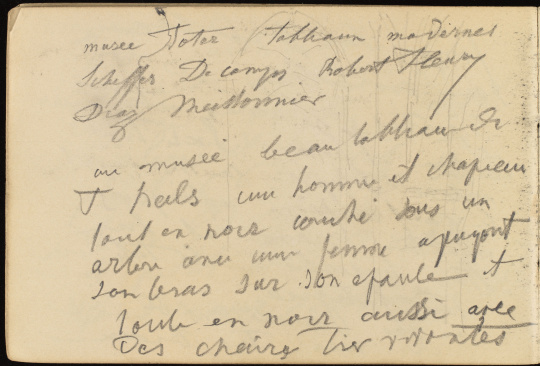 musee Fotor tableaux modernes
Scheffer Decamps Robert Fleury
Diaz Meissonnier
au musee beau tableau de
F hals un homme et chapeau
tout en noir couché sous un
arbre avec une femme apuyant
son bras sur son epaule et
toute en noir aussi avec
Des chairs tres vivantes